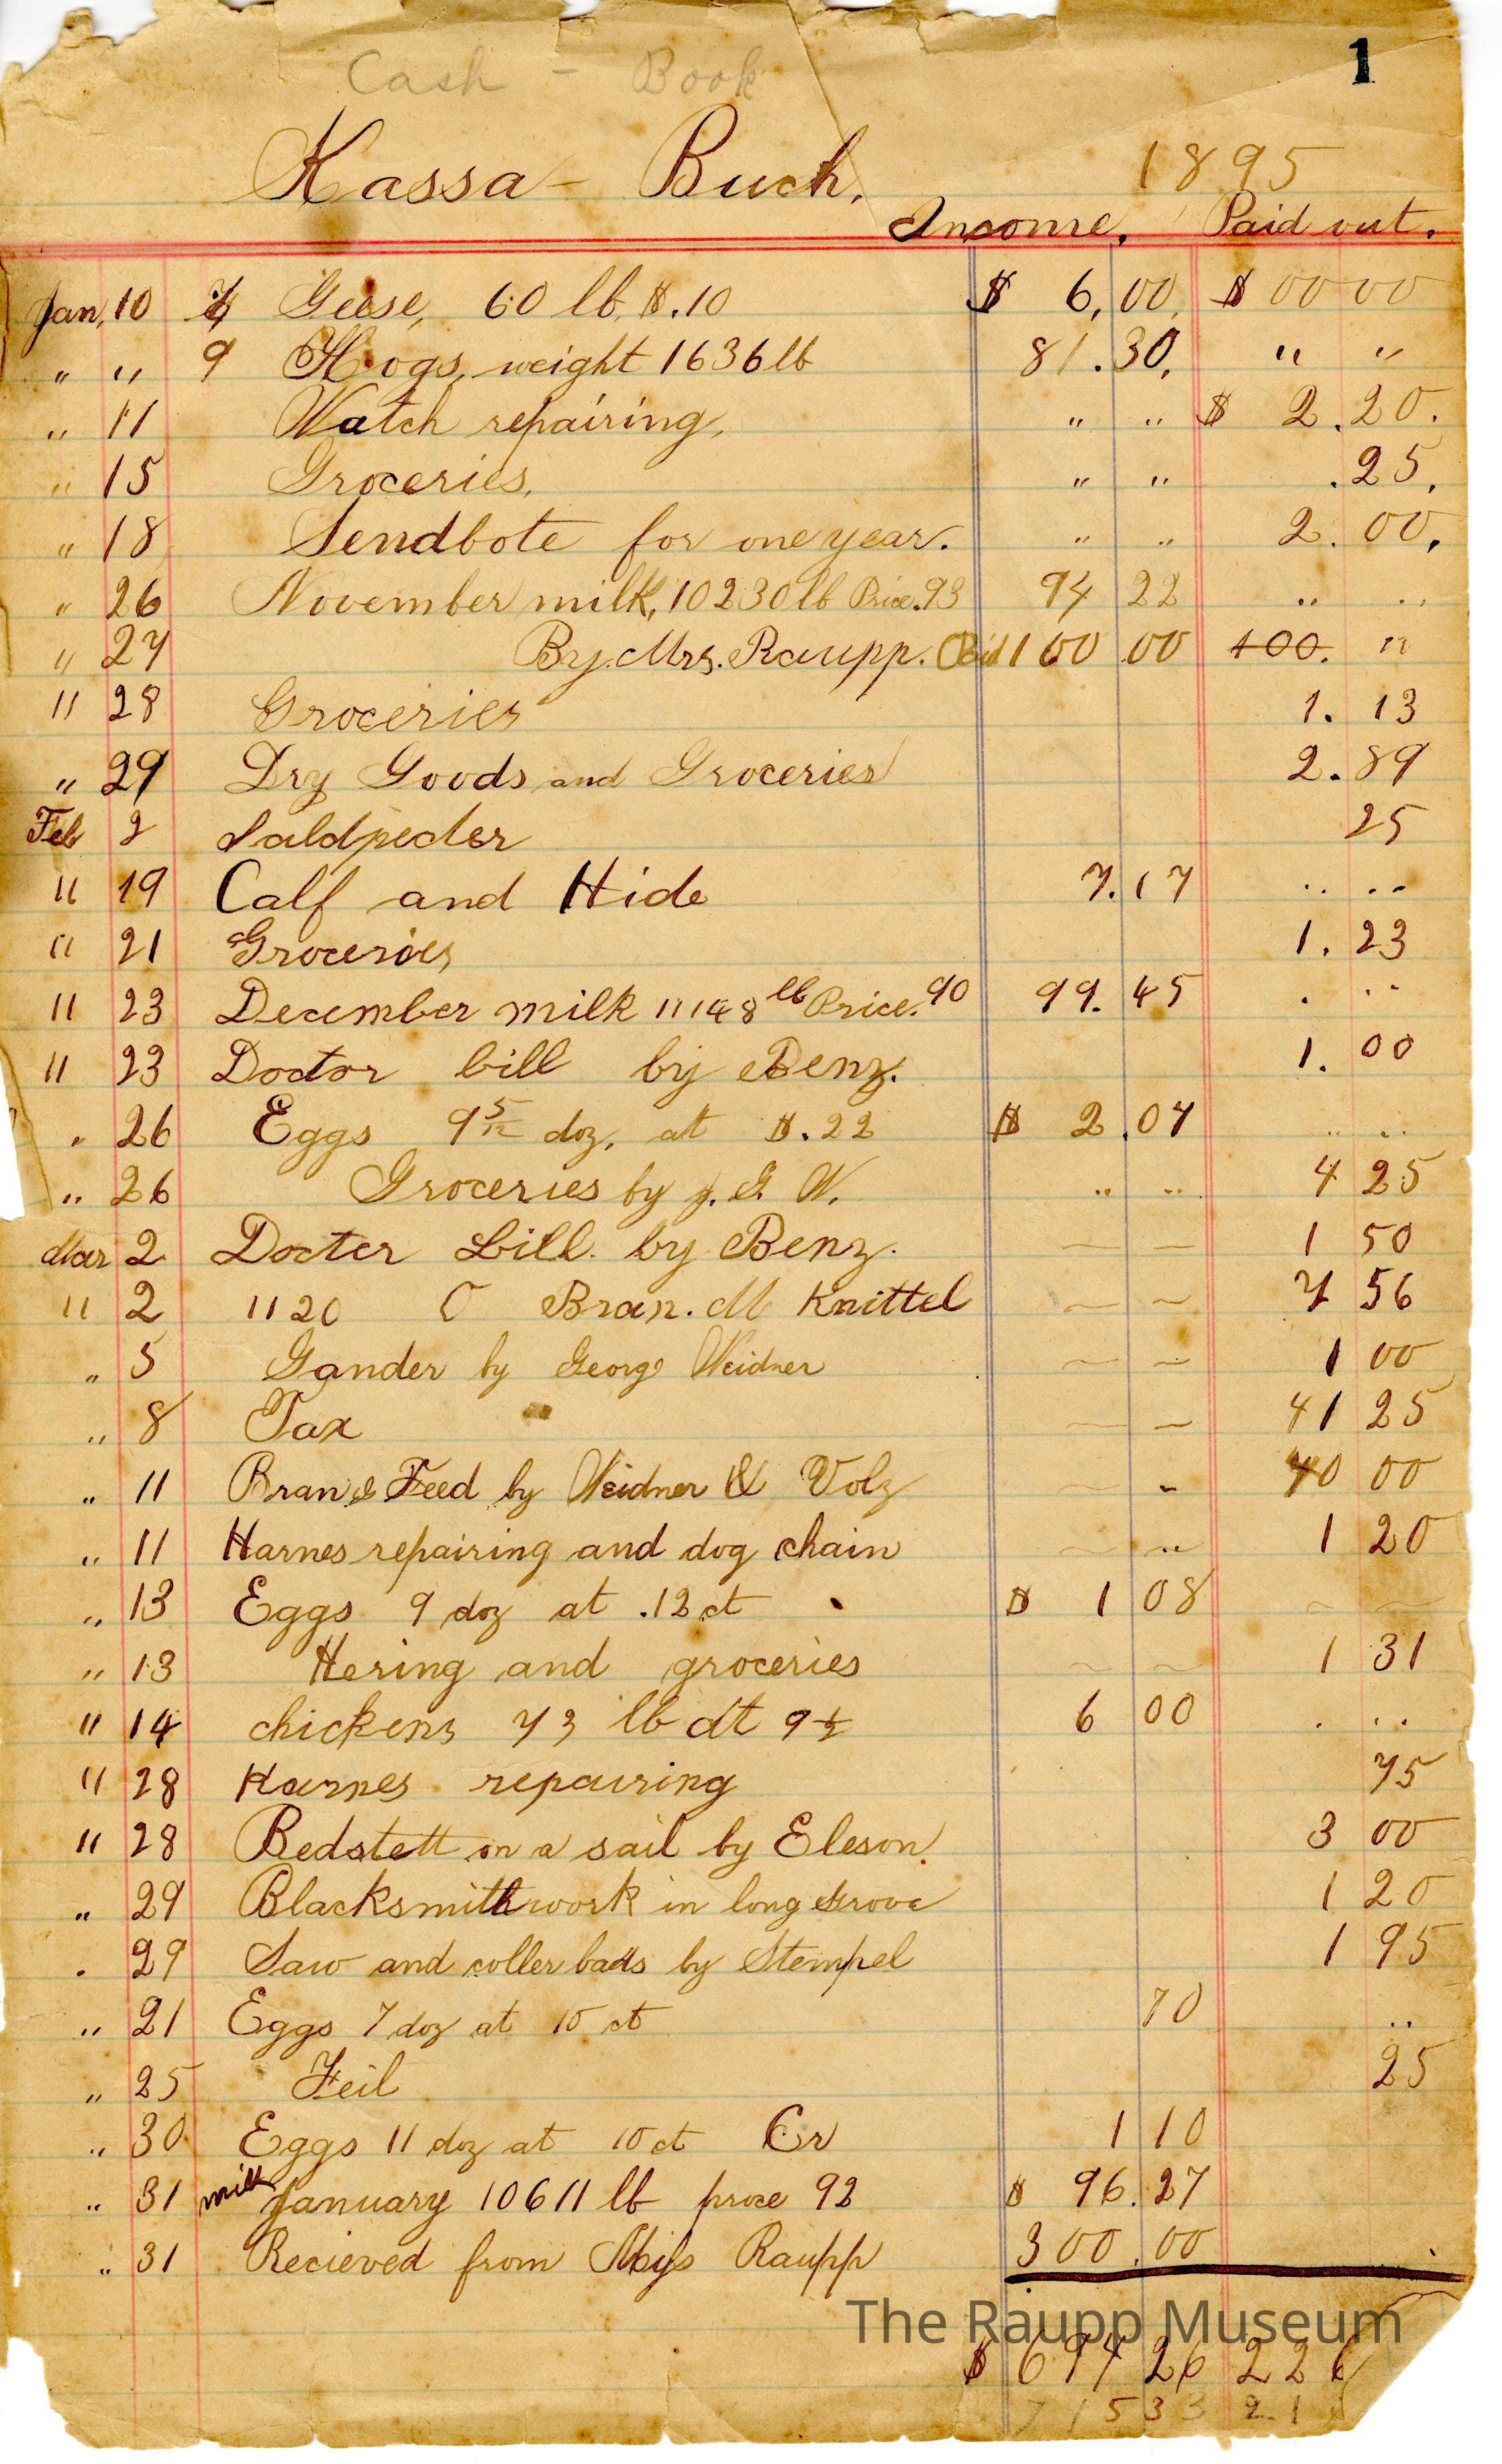 1
Cash - Book
Kassa - Buch. 1895
Income. Paid out.
Jan. 10 Geese, 60 lb, $.10 $ 6,00, $ 00 00
" " 9 Hogs, weight 1636 lb 81.30, " "
" 11 Watch repairing, " " $ 2.20.
" 15 Groceries, " " .25,
" 18 Sendbote for one year. " " 2.00,
" 26 November milk, 10230 lb Price .93 94 22 " "
" 27 By. Mrs. Raupp. 100 00 100. "
" 28 Groceries 1. 13
" 29 Dry Goods and Groceries 2.89
Feb 2 Saldpeder 25
" 19 Calf and Hide 7.17 " "
" 21 Groceries 1. 23
" 23 December milk 11148 lb Price. 90 99. 45 . "
" 23 Doctor bill by Benz. 1. 00
" 26 Eggs 9 5/12 doz, at $.22 $ 2.07 " "
" 26 Groceries by J. G. W. " " 4 25
Mar 2 Docter Bill. by Benz. ~ ~ 1 50
" 2 1120 Bran. M Knittel ~ ~ 7 56
" 5 Gander by George Weidner ~ ~ 1 00
" 8 Tax ~ ~ 41 25
" 11 Bran & Feed by Weidner & Volz ~ - 40 00
" 11 Harnes repairing and dog chain ~ " 1 20
" 13 Eggs 9 doz at .12 ct $ 1 08 ~ ~
" 13 Hering and groceries ~ ~ 1 31
" 14 chickens 73 lb at 9 1/2 6 00 . "
" 28 Harnes repairing 75
" 28 Bedstett on a sail by Eleson. 3 00
" 29 Blacksmithwork in long Grove 1 20
. 29 Saw and coller bads by Stempel 1 95
" 21 Eggs 7 doz at 10 ct 70 "
" 25 Feil 25
" 30 Eggs 11 doz at 10 ct Cr 1 10
" 31 milk January 10611 lb price 92 $ 96.27
" 31 Recieved from Raupp 300.00
The Raupp Museum
$ 694 26 22
71533 21